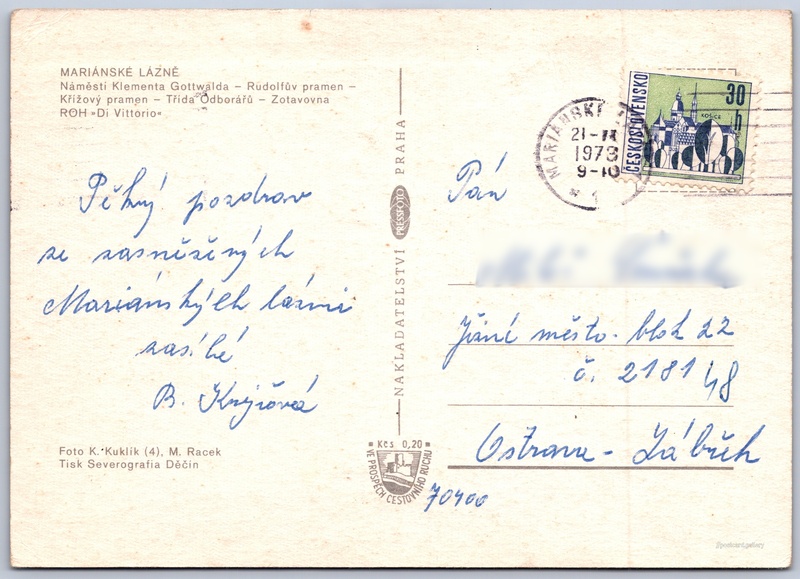 MARIÁNSKÉ LÁZNĚ
Náměstí Klementa Gottwalda – Rudolfův pramen –
Křížový pramen – Třída Odborářů – Zotavovna
ROH »Di Vittorio«
Pěkný pozdrav
ze zasněžených
Mariánských lázní
zasílá
B. Krejčová
Foto K. Kuklík (4), M. Racek
Tisk Severografia Děčín
NAKLADATELSTVÍ PRESSFOTO PRAHA
Kčs 0,20
VE PROSPĚCH CESTOVNÍHO RUCHU
MARIÁNSKÉ
21-II
1973
9-10
1
ČESKOSLOVENSKO
30 h
KOŠICE
Pán
Jižní město. blok 22
č. 2181/48
Ostrava - Zábřeh
70400